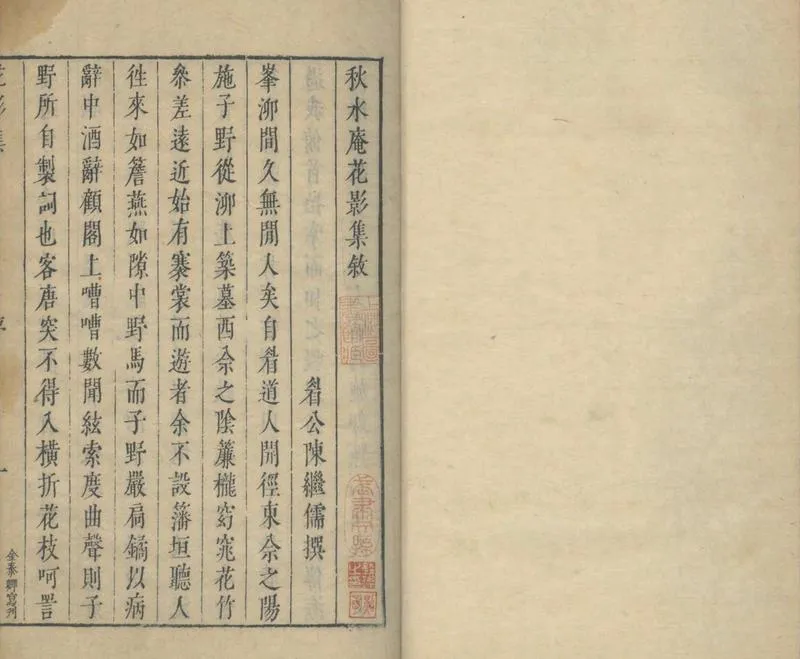 秋水庵花影集敘
眉公陳繼儒撰
峯泖間久無閒人矣自眉道人開徑東佘之陽
施子野從泖上築墓西佘之陰簾櫳窈窕花竹
叅差遠近始有褰裳而遊者余不設藩垣聽人
徃來如簷燕如隙中野馬而子野嚴扃鐍以病
辭中酒辭顧閣上嘈嘈數聞絃索度曲聲則子
野所自製詞也客唐突不得入橫折花枝呵詈
花影集
序
一
金泰卿寫刋